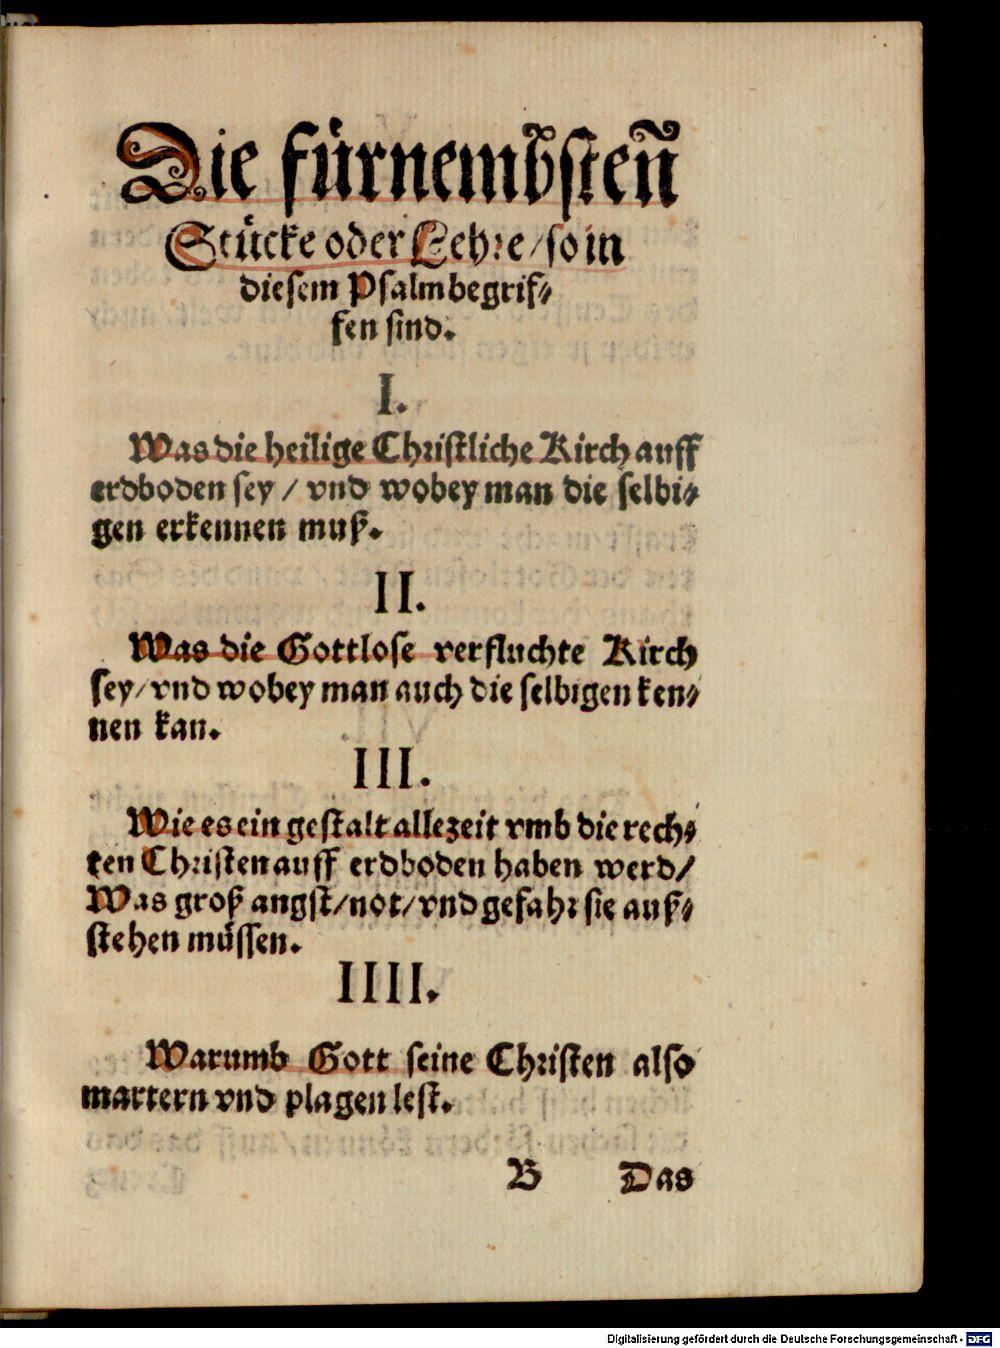 Die fürnemb̃sten̄
Stücke oder Lehre / so in
diesem Psalm begrif⸗
fen sind.
I.
Was die heilige Christliche Kirch auff
erdboden sey / vnd wobey man die selbi⸗
gen erkennen muß.
II.
Was die Gottlose verfluchte Kirch
sey / vnd wobey man auch die selbigen ken⸗
nen kan.
III.
Wie es ein gestalt allezeit vmb die rech⸗
ten Christen auff erdboden haben werd /
Was groß angst / not / vnd gefahr sie auß⸗
stehen müssen.
IIII.
Warumb Gott seine Christen also
martern vnd plagen lest.
B Das
Digitalisierung gefördert durch die Deutsche Forschungsgemeinschaft - DFG